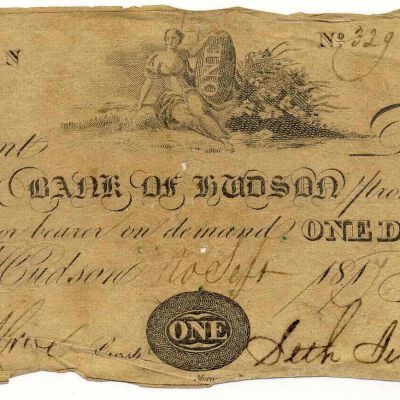 N
No 329
ONE
BANK OF HUDSON pro
or bearer on demand ONE D
Hudson 20 Sept 1817
ONE
Seth